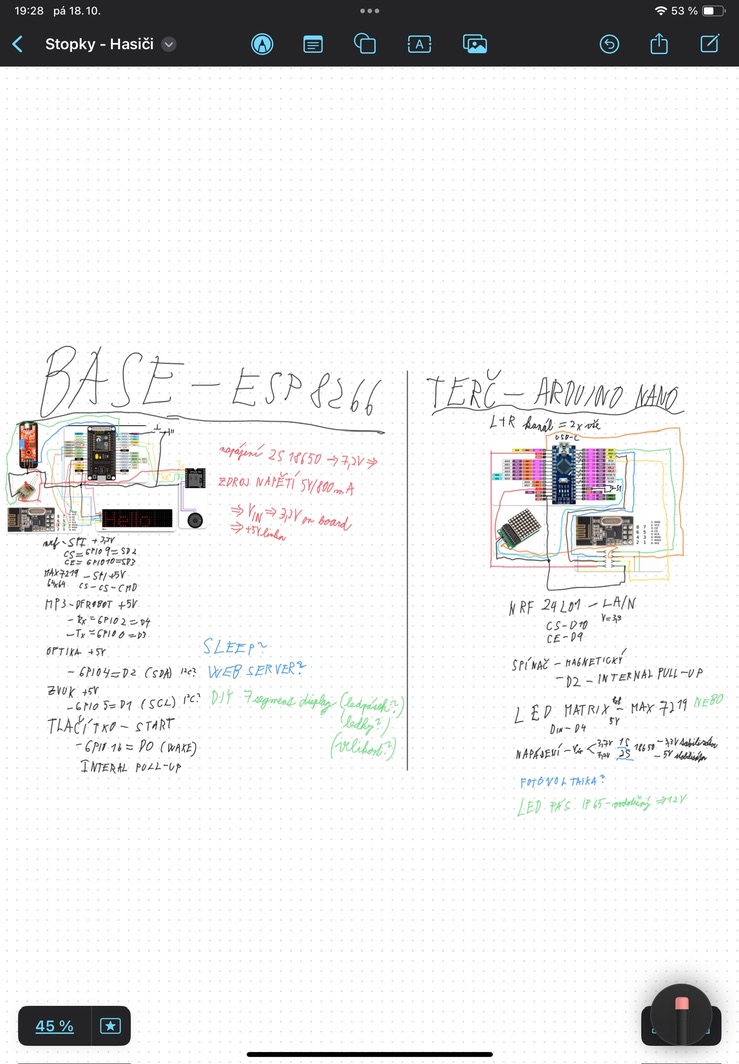 19:28 pá 18.10.
53 %
Stopky - Hasiči
BASE - ESP8266
napájení 2S 18650 → 7,2V ⇒
ZDROJ NAPĚTÍ 5V/800mA
⇒ VIN ⇒ 3,3V on board
⇒ +5V
nrf - SPI + 3,3V
CS = GPIO9 = SD2
CE = GPIO10 = SD3
MAX7219 - SPI +5V
CS - CS - CMD
MP3 - DFROBOT +5V
- Rx = GPIO2 = D4
- Tx = GPIO0 = D3
OPTIKA +5V
- GPIO4 = D2 (SDA) I²C?
ZVUK +5V
- GPIO5 = D1 (SCL) I²C?
TLAČÍTKO - START
- GPIO16 = D0 (WAKE)
INTERAL PULL-UP
SLEEP?
WEB SERVER?
DIY 7segment display (ledpásek?)
(ledky?)
(velikost?)
TERČ - ARDUINO NANO
L+R kanál = 2x vše
USB-C
NRF 24L01 - LA/N
CS - D10
V=3,3
CE - D9
SPÍNAČ - MAGNETICKÝ
- D2 - INTERNAL PULL-UP
LED MATRIX - MAX 7219 NEBO
5V
Din - D4
NAPÁJENÍ - Vin < 3,7V 1S 18650 - 3,3V
7,2V 2S - 5V
FOTOVOLTAIKA?
LED PÁS IP65 - ⇒ 12V
45 %